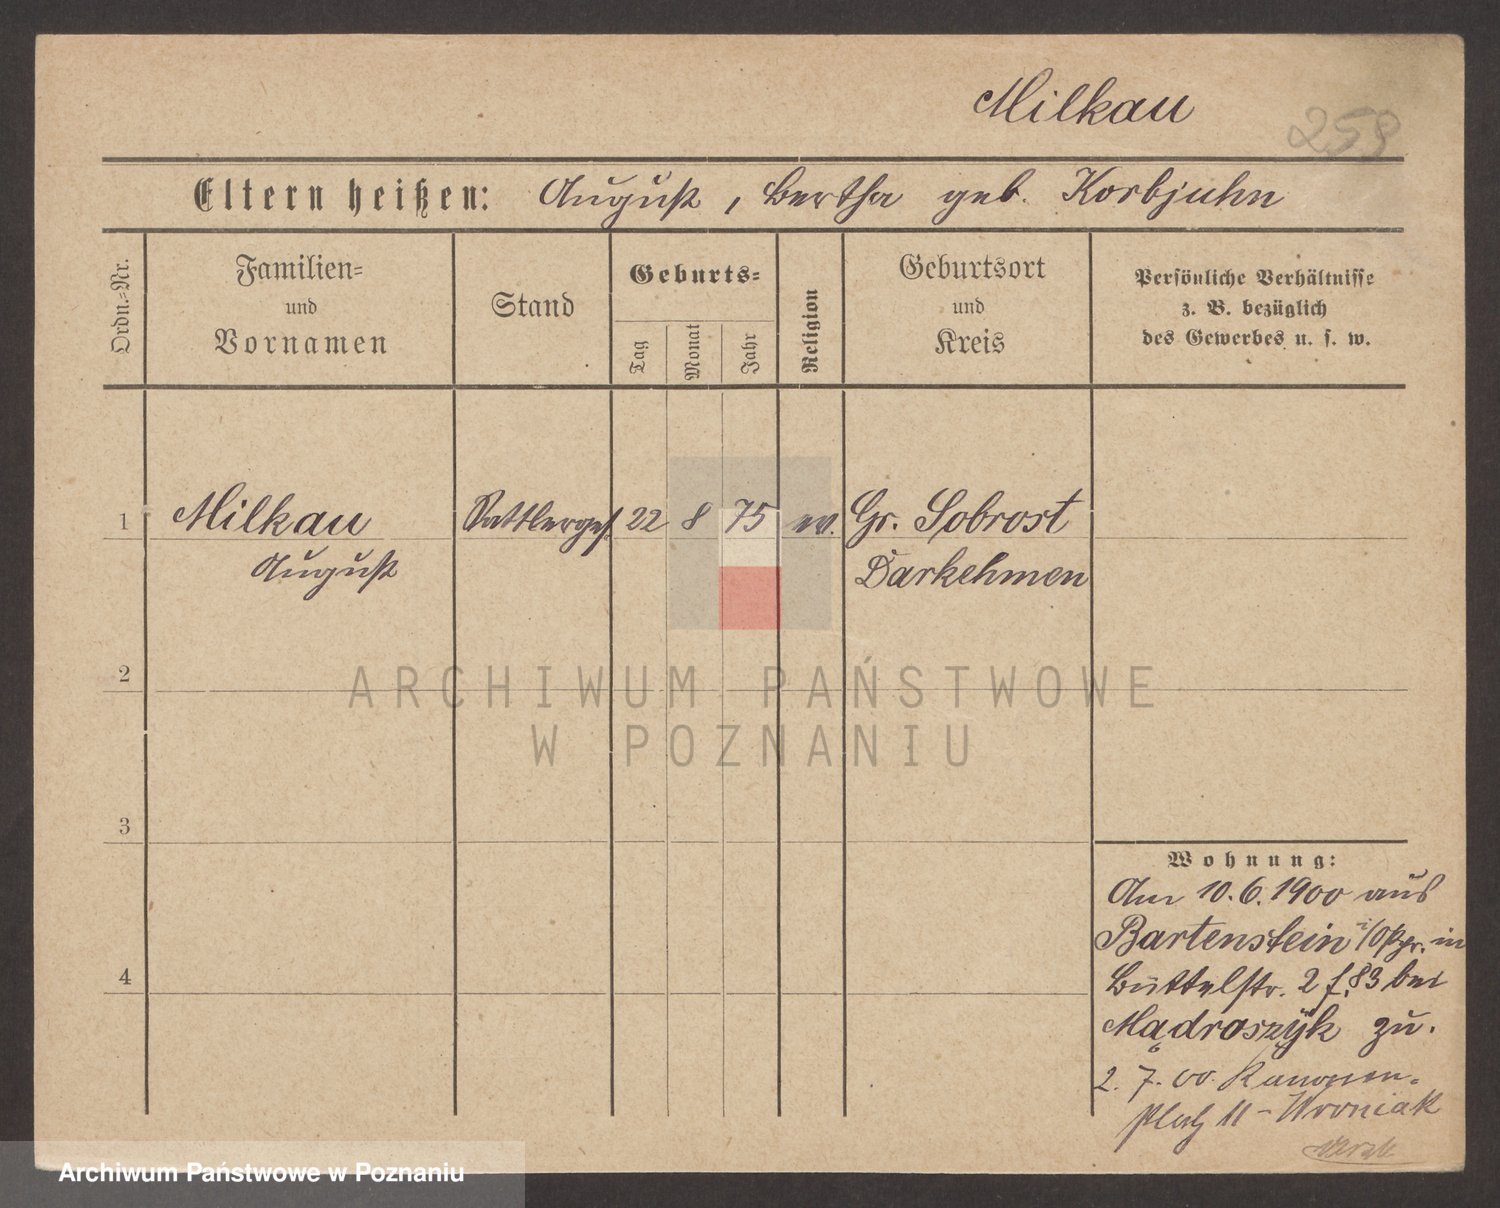 Milkau
259
Eltern heißen: August, Bertha geb. Korbjuhn
Ordn.-Nr.
Familien-
und
Vornamen
Stand
Geburts-
Tag
Monat
Jahr
Religion
Geburtsort
und
Kreis
Persönliche Verhältnisse
z. B. bezüglich
des Gewerbes u. s. w.
1 Milkau Sattlerges. 22 8 75 ev. Gr. Sobrost
August Darkehmen
2
ARCHIWUM PAŃSTWOWE
W POZNANIU
3
Wohnung:
Am 10.6.1900 aus
Bartenstein i/Opr. in
4
Büttelstr. 2 f. 83 bei
Mądroszyk zu.
2. 7. 00. Kanonen-
platz 11 - Wroniak
Archiwum Państwowe w Poznaniu